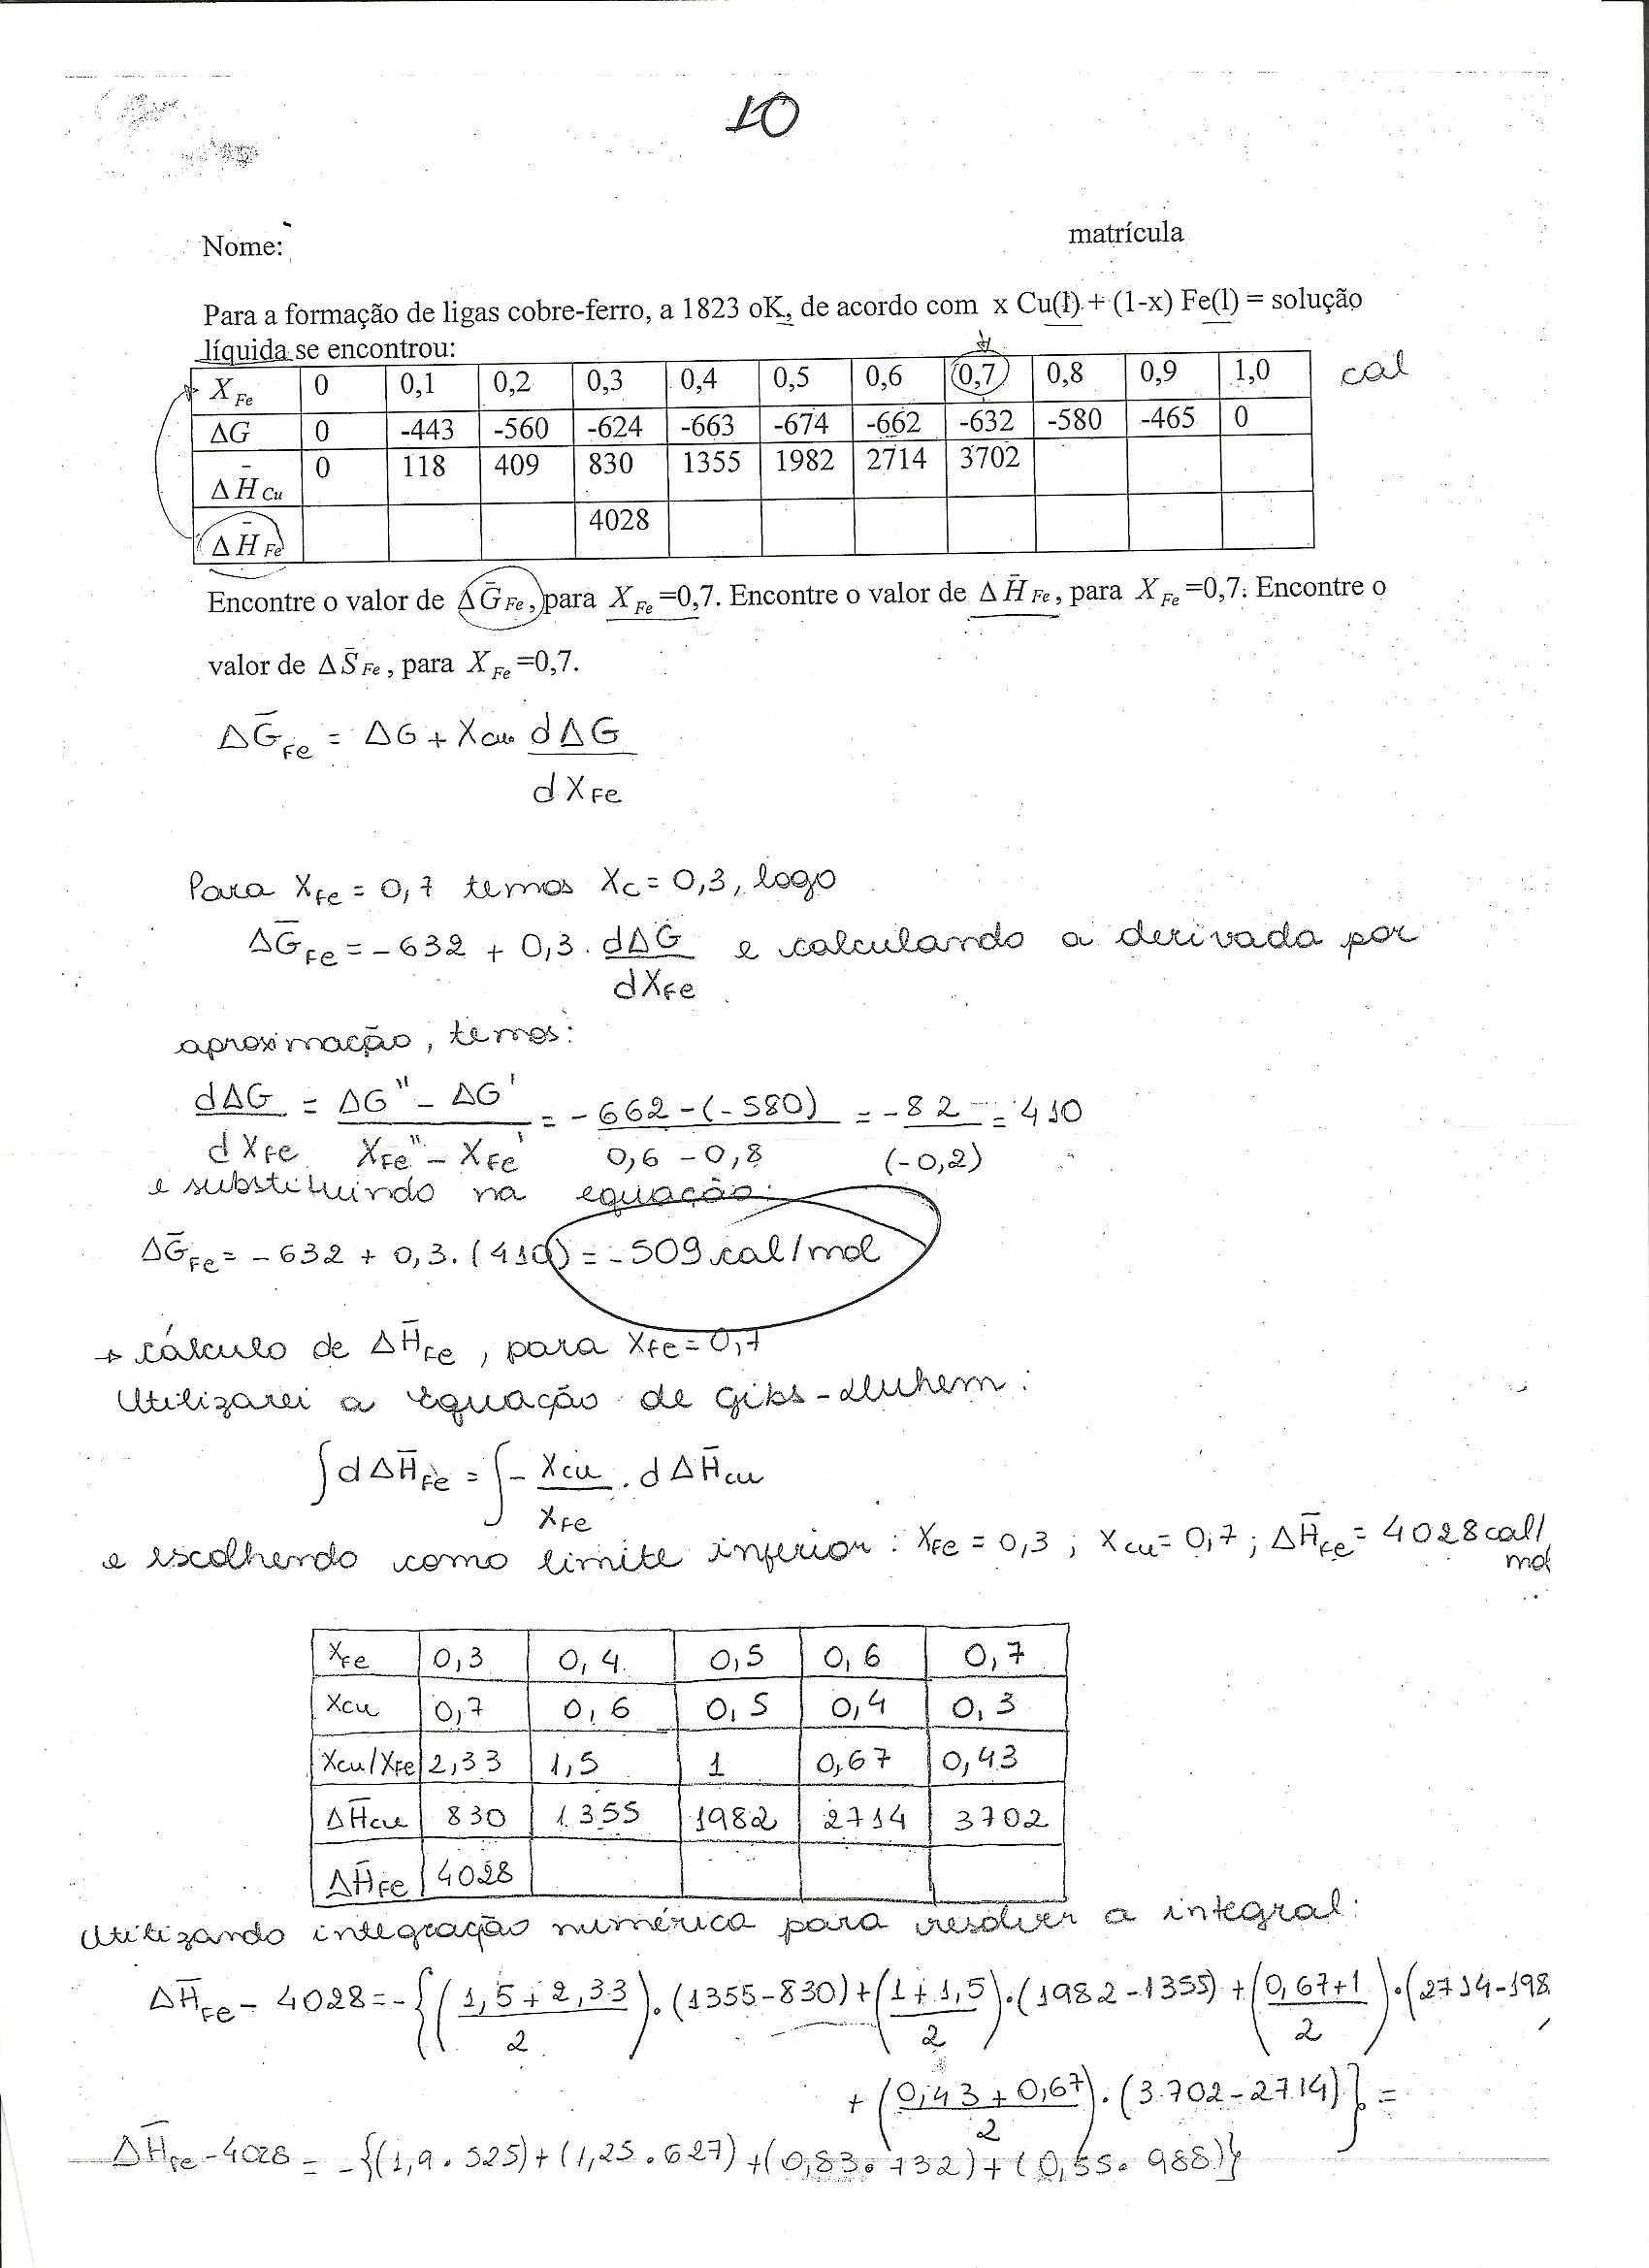 10
Nome: matrícula
Para a formação de ligas cobre-ferro, a 1823 oK, de acordo com x Cu(l) + (1-x) Fe(l) = solução
líquida se encontrou:
X Fe 0 0,1 0,2 0,3 0,4 0,5 0,6 0,7 0,8 0,9 1,0 cal
ΔG 0 -443 -560 -624 -663 -674 -662 -632 -580 -465 0
ΔH̄ Cu 0 118 409 830 1355 1982 2714 3702
ΔH̄ Fe 4028
Encontre o valor de ΔḠ Fe, para X Fe =0,7. Encontre o valor de ΔH̄ Fe, para X Fe =0,7. Encontre o
valor de ΔS̄ Fe, para X Fe =0,7.
ΔḠFe = ΔG + Xcu. dΔG
dXFe
Para XFe = 0,7 temos Xc = 0,3, logo
ΔḠFe = -632 + 0,3. dΔG e calculando a derivada por
dXFe
aproximação, temos:
dΔG = ΔG" - ΔG' = -662-(-580) = -82 = 410
dXFe XFe" - XFe' 0,6 - 0,8 (-0,2)
e substituindo na equação:
ΔḠFe = -632 + 0,3. (410) = -509 cal/mol
→ cálculo de ΔH̄Fe, para XFe = 0,7
Utilizarei a Equação de Gibs-Duhem:
∫dΔH̄Fe = ∫- Xcu . dΔH̄cu
XFe
e escolhendo como limite inferior: XFe = 0,3 ; Xcu = 0,7 ; ΔH̄Fe = 4028 cal/
mol
XFe 0,3 0,4 0,5 0,6 0,7
Xcu 0,7 0,6 0,5 0,4 0,3
Xcu/XFe 2,33 1,5 1 0,67 0,43
ΔH̄cu 830 1355 1982 2714 3702
ΔH̄Fe 4028
Utilizando integração numérica para resolver a integral:
ΔH̄Fe - 4028 = -{(1,5+2,33).(1355-830)+(1+1,5).(1982-1355)+(0,67+1).(2714-198
2 2 2
+ (0,43+0,67).(3702-2714)} =
2
ΔH̄Fe - 4028 = -{(1,9.525)+(1,25.627)+(0,83.732)+(0,55.988)}